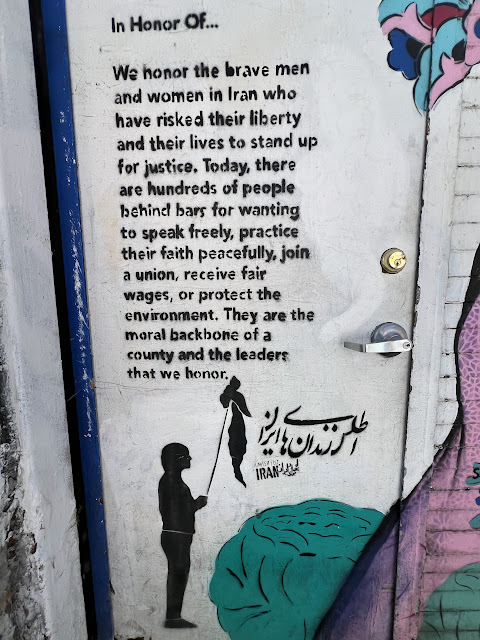 In Honor Of...
We honor the brave men
and women in Iran who
have risked their liberty
and their lives to stand up
for justice. Today, there
are hundreds of people
behind bars for wanting
to speak freely, practice
their faith peacefully, join
a union, receive fair
wages, or protect the
environment. They are the
moral backbone of a
county and the leaders
that we honor.
اطلس زندان‌های ایران
IRAN